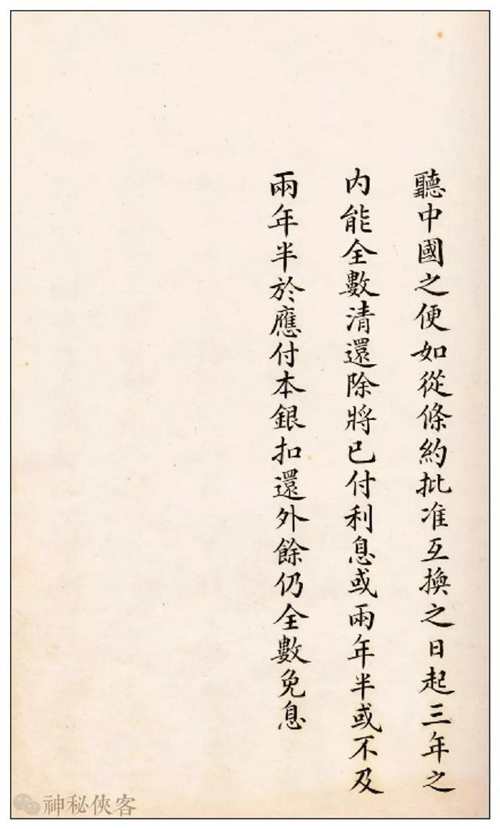 聽中國之便如從條約批准互換之日起三年之
内能全數清還除將已付利息或兩年半或不及
兩年半於應付本銀扣還外餘仍全數免息
神秘俠客